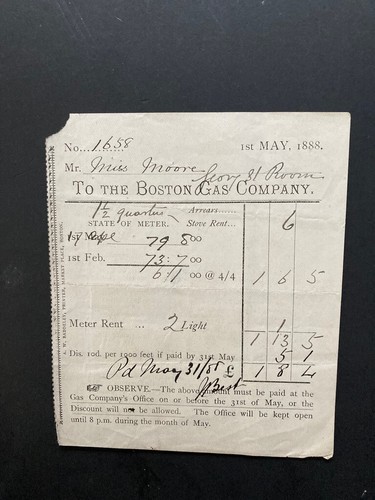 No. 1658 1st MAY, 1888.
Mr. Miss Moore Geory St Room
TO THE BOSTON GAS COMPANY.
1½ quarters Arrears......
STATE OF METER. Stove Rent... 6
1st 79 800
1st Feb. 73:700
6100 @ 4/4 1 6 5
Meter Rent ... 2 Light 1
1 13 5
Dis. 10d. per 1000 feet if paid by 31st May 5 1
Pd May 31/88 £ 1 8 4
JBest
☞ OBSERVE.—The above amount must be paid at the
Gas Company's Office on or before the 31st of May, or the
Discount will not be allowed. The Office will be kept open
until 8 p.m. during the month of May.
PRINTER, MARKET PLACE, BOSTON.